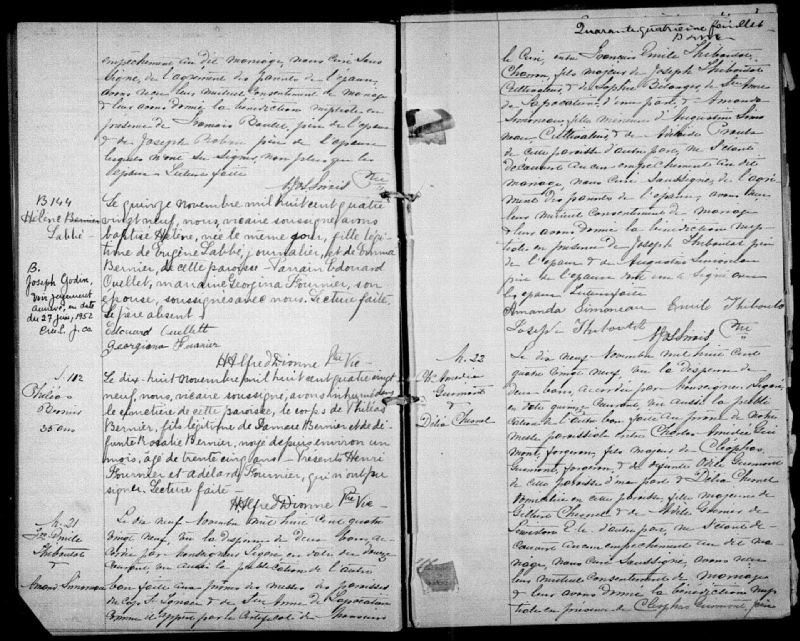 empêchement au dit mariage, nous curé sous
signé, de l'agrément des parents de l'épouse,
avons reçu leur mutuel consentement de mariage
& leur avons donné la bénédiction nuptiale en
présence de père de l'époux
& de Joseph père de l'épouse
lesquels n'ont su signer, non plus que les
époux. Lecture faite
Ptre
B 144
Hélène Bernier
Labbé
Le quinze novembre mil huit cent quatre
vingt neuf, nous, vicaire soussigné, avons
baptisé Hélène, née le même jour, fille légi-
time de Eugène Labbé, journalier, et de Emma
Bernier, de cette paroisse. Parrain Edouard
Ouellet, marraine Georgina Fournier, son
épouse, soussignés avec nous. Lecture faite.
Le père absent.
Edouard Ouellett
Georgiana Furnier
H Alfred Dionne Ptre Vic
B.
Joseph Godin,
jugement
en date
du 27 juin, 1952
S. 102
Philéas
Bernier
35 ans
Le dix-huit novembre mil huit cent quatre vingt
neuf, nous, vicaire soussigné, avons inhumé dans
le cimetière de cette paroisse, le corps de Philéas
Bernier, fils légitime de Bernier et de dé-
funte Rosalie Bernier, noyé depuis environ un
mois, âgé de trente cinq ans. Présents Henri
Fournier et Adelard Fournier, qui n'ont pu
signer. Lecture faite
H Alfred Dionne Ptre Vic
M. 21
Jos. Emile
Thiboutot
&
Amanda Simoneau
Le dix neuf Novembre mil huit cent quatre
vingt neuf, vu la dispense de deux bans, ac-
cordée par Monseigneur Légaré en date du douze
courant, vu aussi la publication de l'autre
ban faite aux prônes des messes des paroisses
de Cap St Ignace & de Ste Anne de Lapocatière
comme il appert par le certificat de
Quarante quatrième feuillet
le Curé, entre François Emile Thiboutot,
Charron, fils majeur de Joseph Thiboutot
Cultivateur, & de Sophie Bélanger, de Ste Anne
de Lapocatière, d'une part, & Amanda
Simoneau, fille mineure d'Augustin Simo
neau Cultivateur, & de
de cette paroisse d'autre part, ne s'étant
découvert aucun empêchement au dit
mariage, nous curé soussigné, de l'agré-
ment des parents de l'épouse, avons reçu
leur mutuel consentement de mariage
& leur avons donné la bénédiction nup-
tiale en présence de Joseph Thiboutot père
de l'époux & de Augustin Simoneau
père de l'épouse dont un a signé avec
les époux. Lecture faite
Amanda Simoneau Emile Thiboutot
Joseph Thiboutot
Ptre
M. 22
Ch. Amédée
Guimont
&
Délia Chesnel
Le dix neuf Novembre mil huit cent
quatre vingt neuf, vu la dispense de
deux bans, accordée par Monseigneur Légaré
en date quinze courant, vu aussi la publi
cation de l'autre ban faite au prône de notre
messe paroissiale entre Charles Amédée Gui
mont, forgeron, fils majeur de Cléophas
Guimont, forgeron, & de défunte Guimont
de cette paroisse d'une part & Délia Chesnel
domiciliée en cette paroisse, fille majeure de
Chesnel & de de
Lewiston d'autre part, ne s'étant dé-
couvert aucun empêchement au dit ma-
riage, nous curé soussigné, avons reçu
leur mutuel consentement de mariage
& leur avons donné la bénédiction nup-
tiale en présence de Cléophas Guimont père